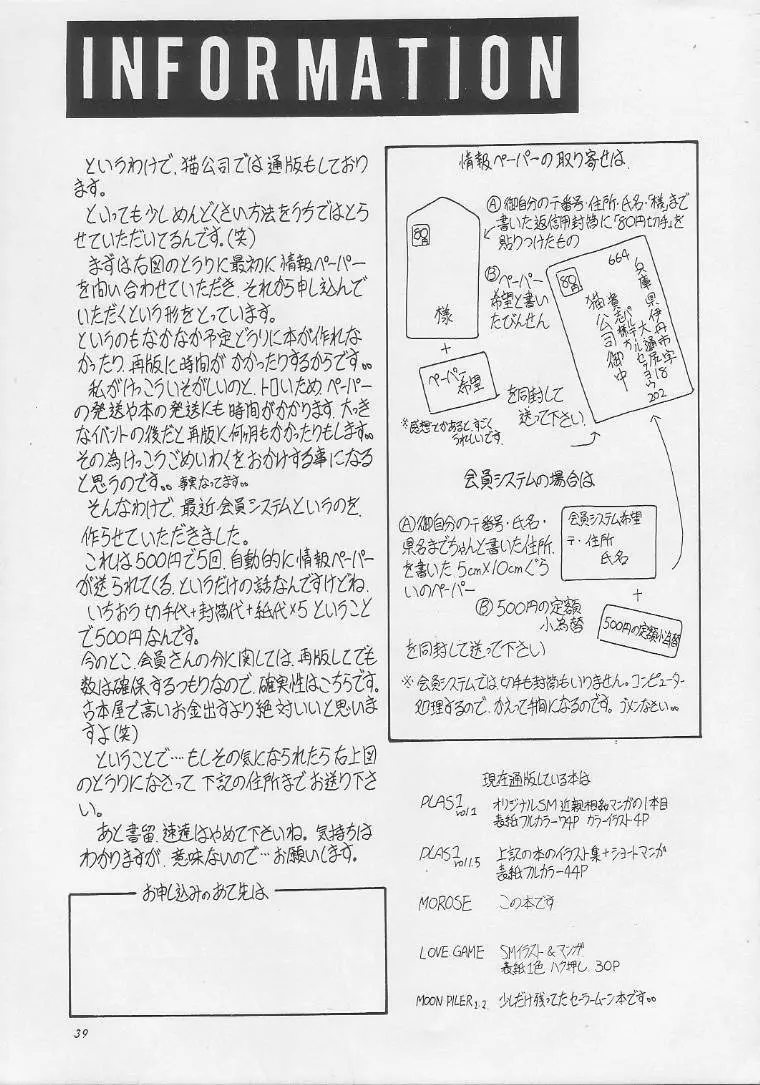 INFORMATION
というわけで、猫公司では通版もしており
ます。
といっても少しめんどくさい方法をうちではとら
せていただいてるんです。(笑)
まずは右図のとうりに最初に情報ペーパー
を問い合わせていただき、それから申し込んで
いただくという形をとっています。
というのもなかなか予定どうりに本が作れな
かったり、再版に時間がかかったりするからです。。
私がけっこういそがしいのと、トロいため、ペーパー
の発送や本の発送にも時間がかかります。大っき
なイベントの後だと再版に何ヶ月もかかったりもします。。
その為けっこうごめいわくをおかけする事になる
と思うのです。。事実なってます。。
そんなわけで、最近会員システムというのを、
作らせていただきました。
これは500円で5回、自動的に情報ペーパー
が送られてくる、というだけの話なんですけどね、
いちおう切手代+封筒代+紙代×5ということ
で500円なんです。
今のとこ、会員さんの分に関しては、再版してでも
数は確保するつもりなので、確実性はこちらです。
古本屋で高いお金出すより絶対いいと思いま
すよ(笑)
ということで…もしその気になられたら右上図
のとうりになさって下記の住所までお送り下さ
い。
あと書留、速達はやめて下さいね。気持ちは
わかりますが、意味ないので…お願いします。
お申し込みのあて先は
39
情報ペーパーの取り寄せは
Ⓐ御自分の〒番号・住所・氏名・「様」まで
書いた返信用封筒に「80円切手」を
貼りつけたもの
80
様
+
ペーパー
希望
Ⓑペーパー
希望と書い
たびんせん
を同封して
送って下さい
※感想とかあると、すごく
うれしいです。
80
664
兵庫県伊丹市
18
202
猫公司御中
会員システムの場合は
Ⓐ御自分の〒番号・氏名・
県名までちゃんと書いた住所
を書いた5cm×10cmぐら
いのペーパー
会員システム希望
〒・住所
氏名
+
Ⓑ500円の定額
小為替
500円の定額小為替
を同封して送って下さい
※会員システムでは、切手も封筒もいりません。コンピューター
処理するので、かえって手間になるのです。ゴメンなさい。。
現在通版している本は
PLAS1 vol.1 オリジナルSM近親相姦マンガの1本目
表紙フルカラー74P カライラスト4P
PLAS1 vol1.5 上記の本のイラスト集+ショートマンガ
表紙フルカラー44P
MOROSE この本です
LOVE GAME SMイラスト&マンガ
表紙1色 ハク押し 30P
MOON PILER 1.2 少しだけ残ってたセーラームーン本です。。